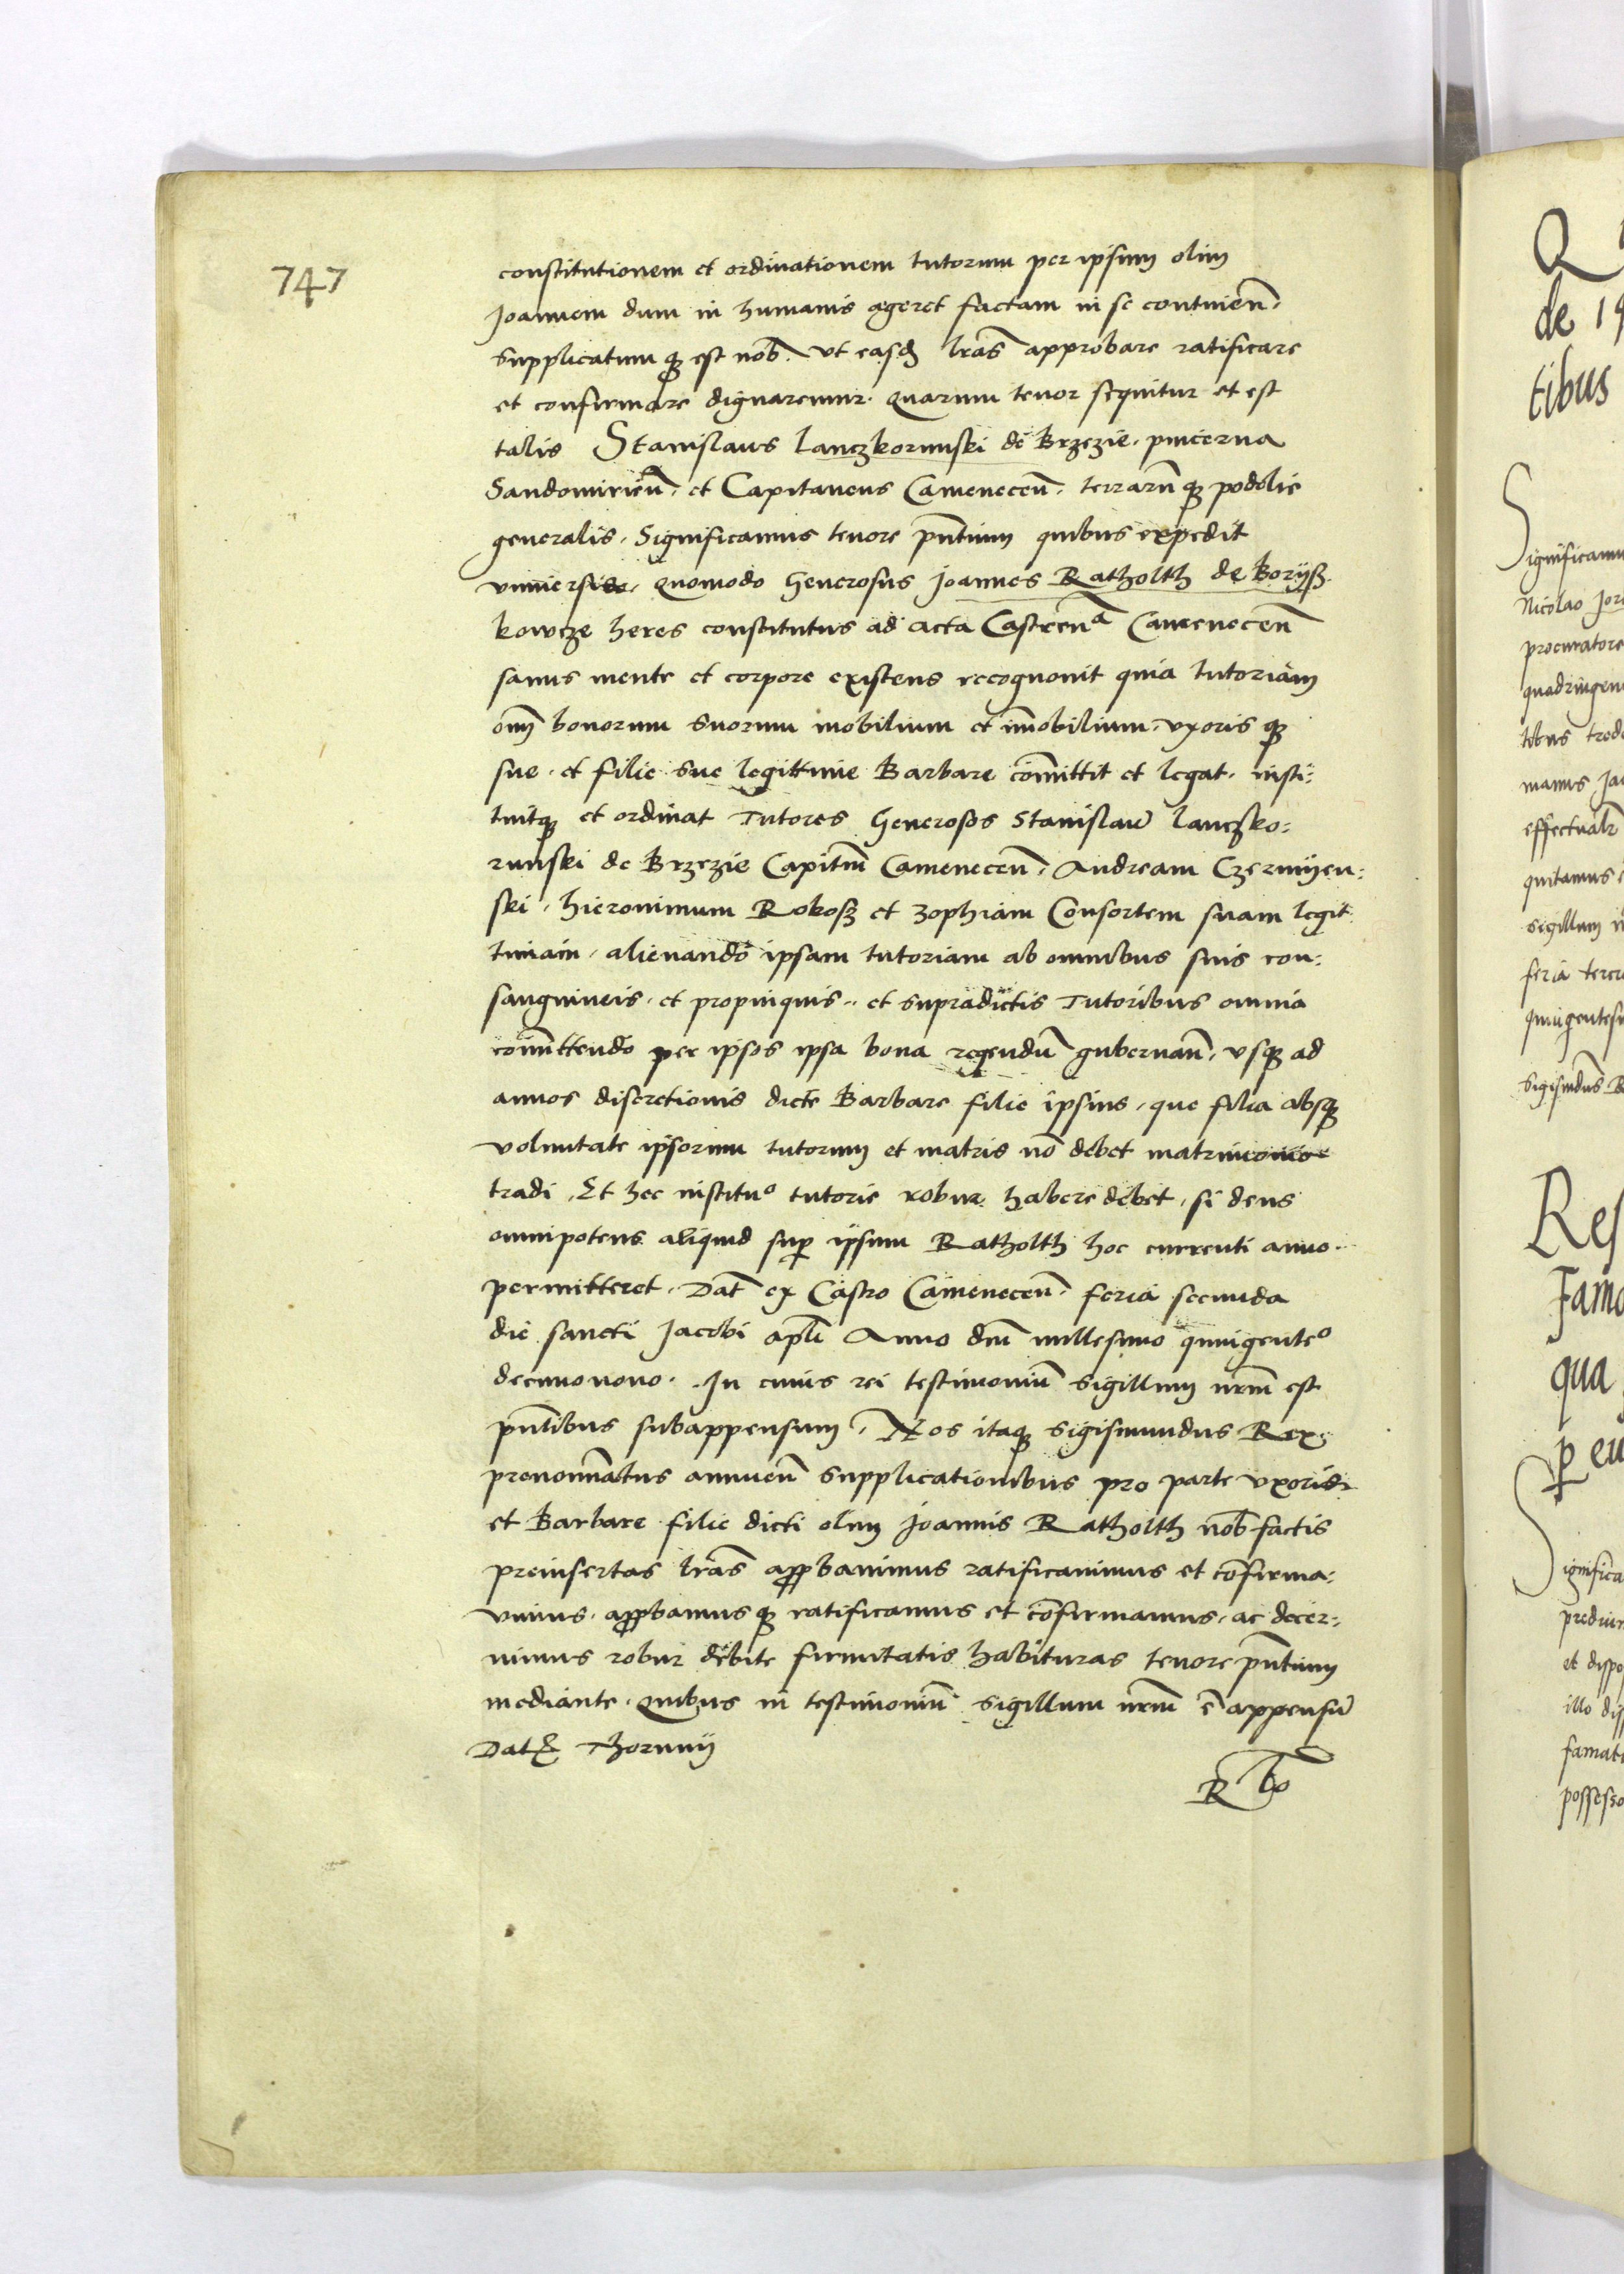 747
constitutionem et ordinationem tutorum per ipsum olim
Joannem dum in humanis ageret factam in se continen̄.
supplicatumq3 est nob̄. vt easd̄ lr̄as approbare ratificare
et confirmare dignaremur. Quarum tenor sequitur et est
talis Stanislaus Lanczkorunski de Brzezie. pincerna
Sandomirien̄. et Capitaneus Camenecen̄. terrarūq3 podolie
generalis. Significamus tenore pn̄tium quibus expedit
vniuersis. quomodo Generosus Joannes Ratholth de Borijß
kowcze heres constitutus ad acta Castren̄a Camenecen̄
sanus mente et corpore existens recognouit quia tutoriam
om̄ bonorum suorum mobilium et im̄obilium. vxorisq3
sue. et filie sue legittime Barbare com̄ittit et legat. insti:
tuitq3 et ordinat Tutores Generosos Stanislaū Lanczko:
runski de Brzezie Capitm̄ Camenecen̄. Andream Czermijen:
ski. Hieronimum Rokosz et Zophiam Consortem suam legit
timam. alienando ipsam tutoriam ab omnibus suis con:
sanguineis. et propinquis.. et supradictis Tutoribus omnia
com̄ittendo per ipsos ipsa bona regendū gubernan̄. vsq3 ad
annos discretionis dicte Barbare filie ipsius. que filia absq3
voluntate ipsorum tutorum et matris nō debet matrimonio
tradi. Et hec institu° tutorie robur habere debet. si deus
omnipotens aliquid sup̄ ipsum Ratholth hoc currenti anno.
permitteret. Dat̄ ex Castro Camenecen̄. feria secunda
die sancti Jacobi apl̄i Anno dn̄i millesimo quingente°
decimonono. In cuius rei testimoniū sigillum nr̄m est
pn̄tibus subappensum. Nos itaq3 Sigismundus Rex
prenominatus annuen̄ supplicationibus pro parte vxoris
et Barbare filie dicti olim Joannis Ratholth nob̄ factis
preinsertas lr̄as app̄bauimus ratificauimus et cōfirma:
uimus. app̄bamusq3 ratificamus et cōfirmamus. ac decer:
nimus robur debite firmitatis habituras tenore pn̄tium
mediante. Quibus in testimoniū sigillum nr̄m ē appensū
Dat̄ Thorunij
Q
de 19
tibus
Significamu
Nicolao Jor
procuratore
quadringen
manus Ja
quitamus
sigillum
feria terci
quingentesi
Res
Famo
qua
p eu
Significa
et dispo
illo dis
famat
possesso